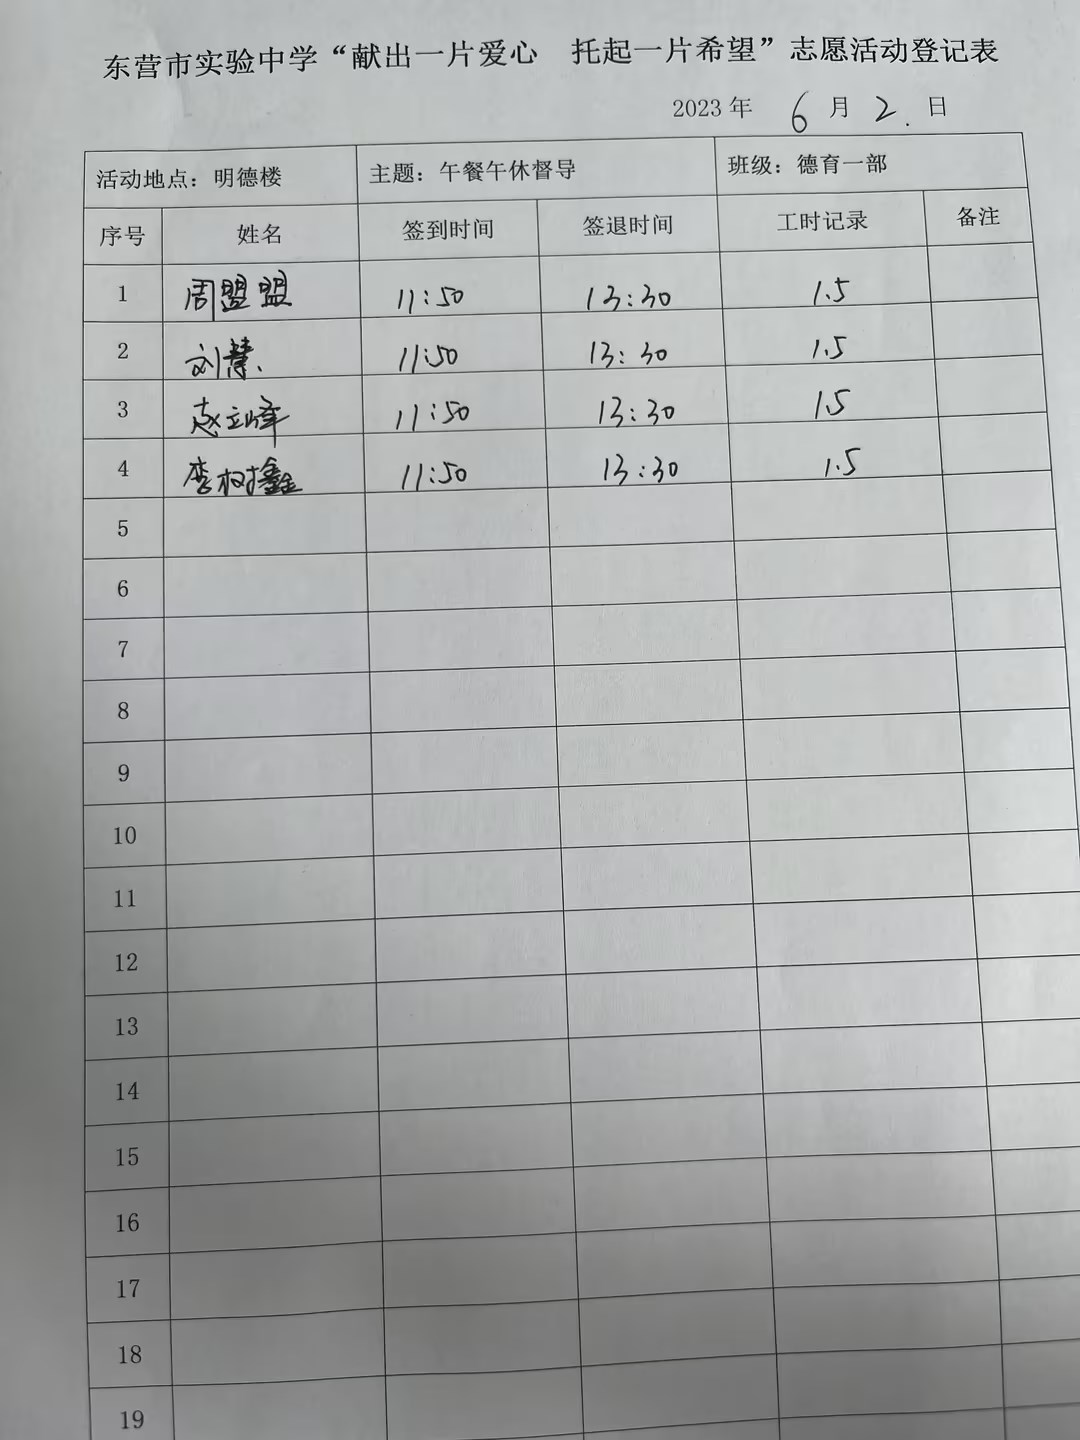 东营市实验中学“献出一片爱心 托起一片希望”志愿活动登记表
2023年 6月2.日
活动地点：明德楼 主题：午餐午休督导 班级：德育一部
序号 姓名 签到时间 签退时间 工时记录 备注
1 周盟盟 11:50 13:30 1.5
2 刘慧 11:50 13:30 1.5
3 赵立峰 11:50 13:30 1.5
4 李树鑫 11:50 13:30 1.5
5
6
7
8
9
10
11
12
13
14
15
16
17
18
19